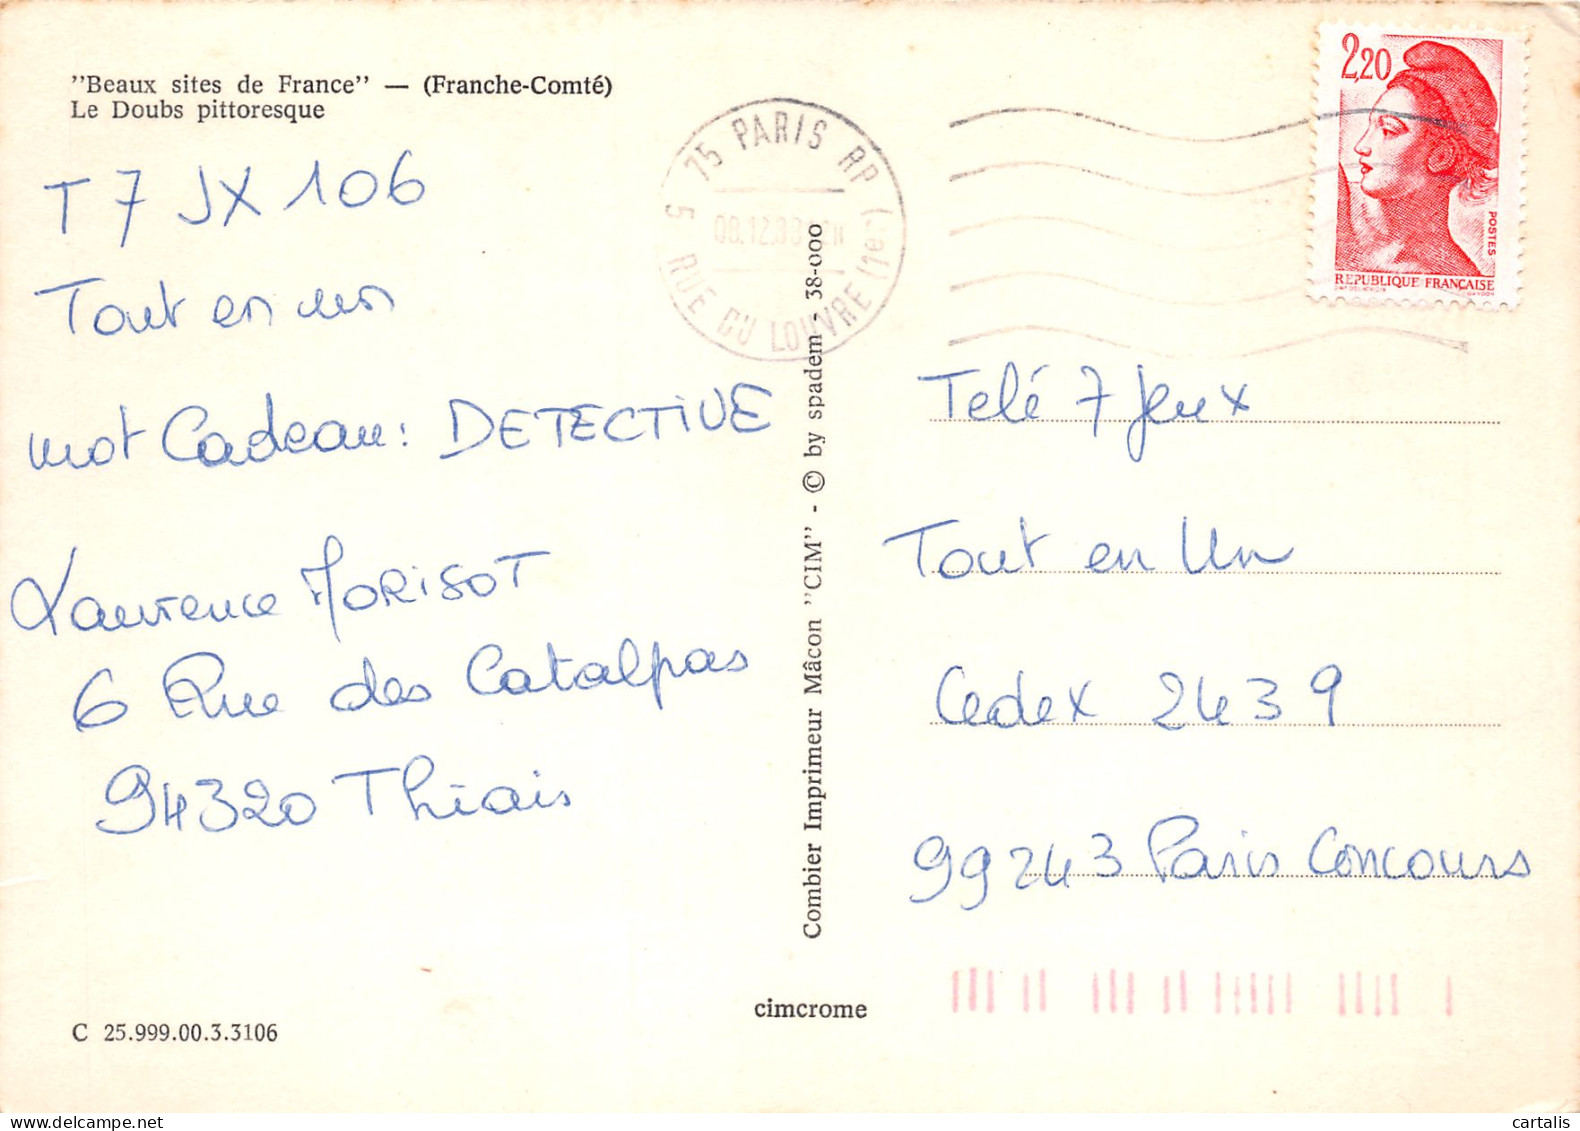 "Beaux sites de France" — (Franche-Comté)
Le Doubs pittoresque
T 7 JX 106
Tout en un
mot Cadeau: DETECTIVE
Laurence MORISOT
6 Rue des Catalpas
94320 Thiais
C 25.999.00.3.3106
75 PARIS RP
5 RUE DU LOUVRE (1er)
Combier Imprimeur Mâcon "CIM" - © by spadem - 38-000
cimcrome
2,20
POSTES
REPUBLIQUE FRANÇAISE
Telé 7 Jeux
Tout en Un
Cedex 2439
99243 Paris Concours
cartalis